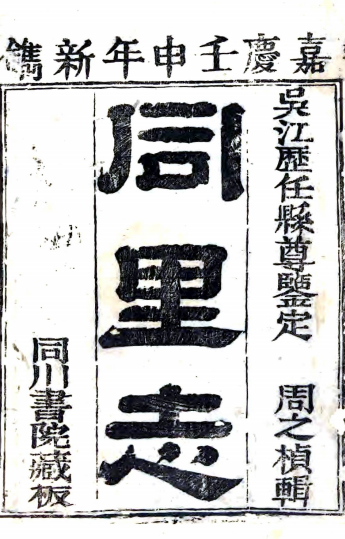 嘉慶壬申年新鐫
吳江歷任縣尊鑒定 周之楨輯
同里志
同川書院藏板